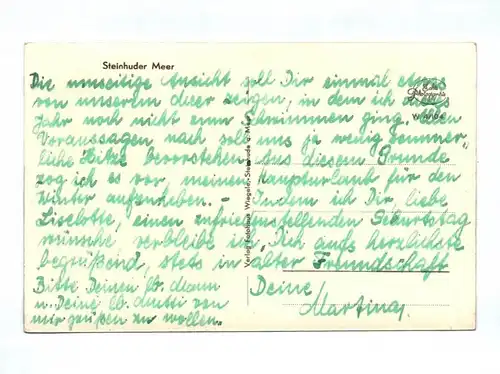 Steinhuder Meer
Die umseitige Ansicht soll Dir einmal etwas
von unserem Meer zeigen, in dem ich dies
Jahr noch nicht zum Schwimmen ging. Allen
Voraussagen, nach soll uns ja wenig sommer-
liche Hitze bevorstehen. Aus diesem Grunde
zog ich es vor, meinen Haupturlaub für den
Winter aufzuheben. – Indem ich Dir, liebe
Liselotte, einen zufriedenstellenden Geburtstag
wünsche verbleibe ich, Dich aufs herzlichste
begrüßend, stets in alter Freundschaft
Bitte Deinen lb. Mann
u. Deine lb. Mutti von
mir grüßen zu wollen.
Deine
Martina
Verlag Fotohaus Wiegand, Steinhude a. Meer